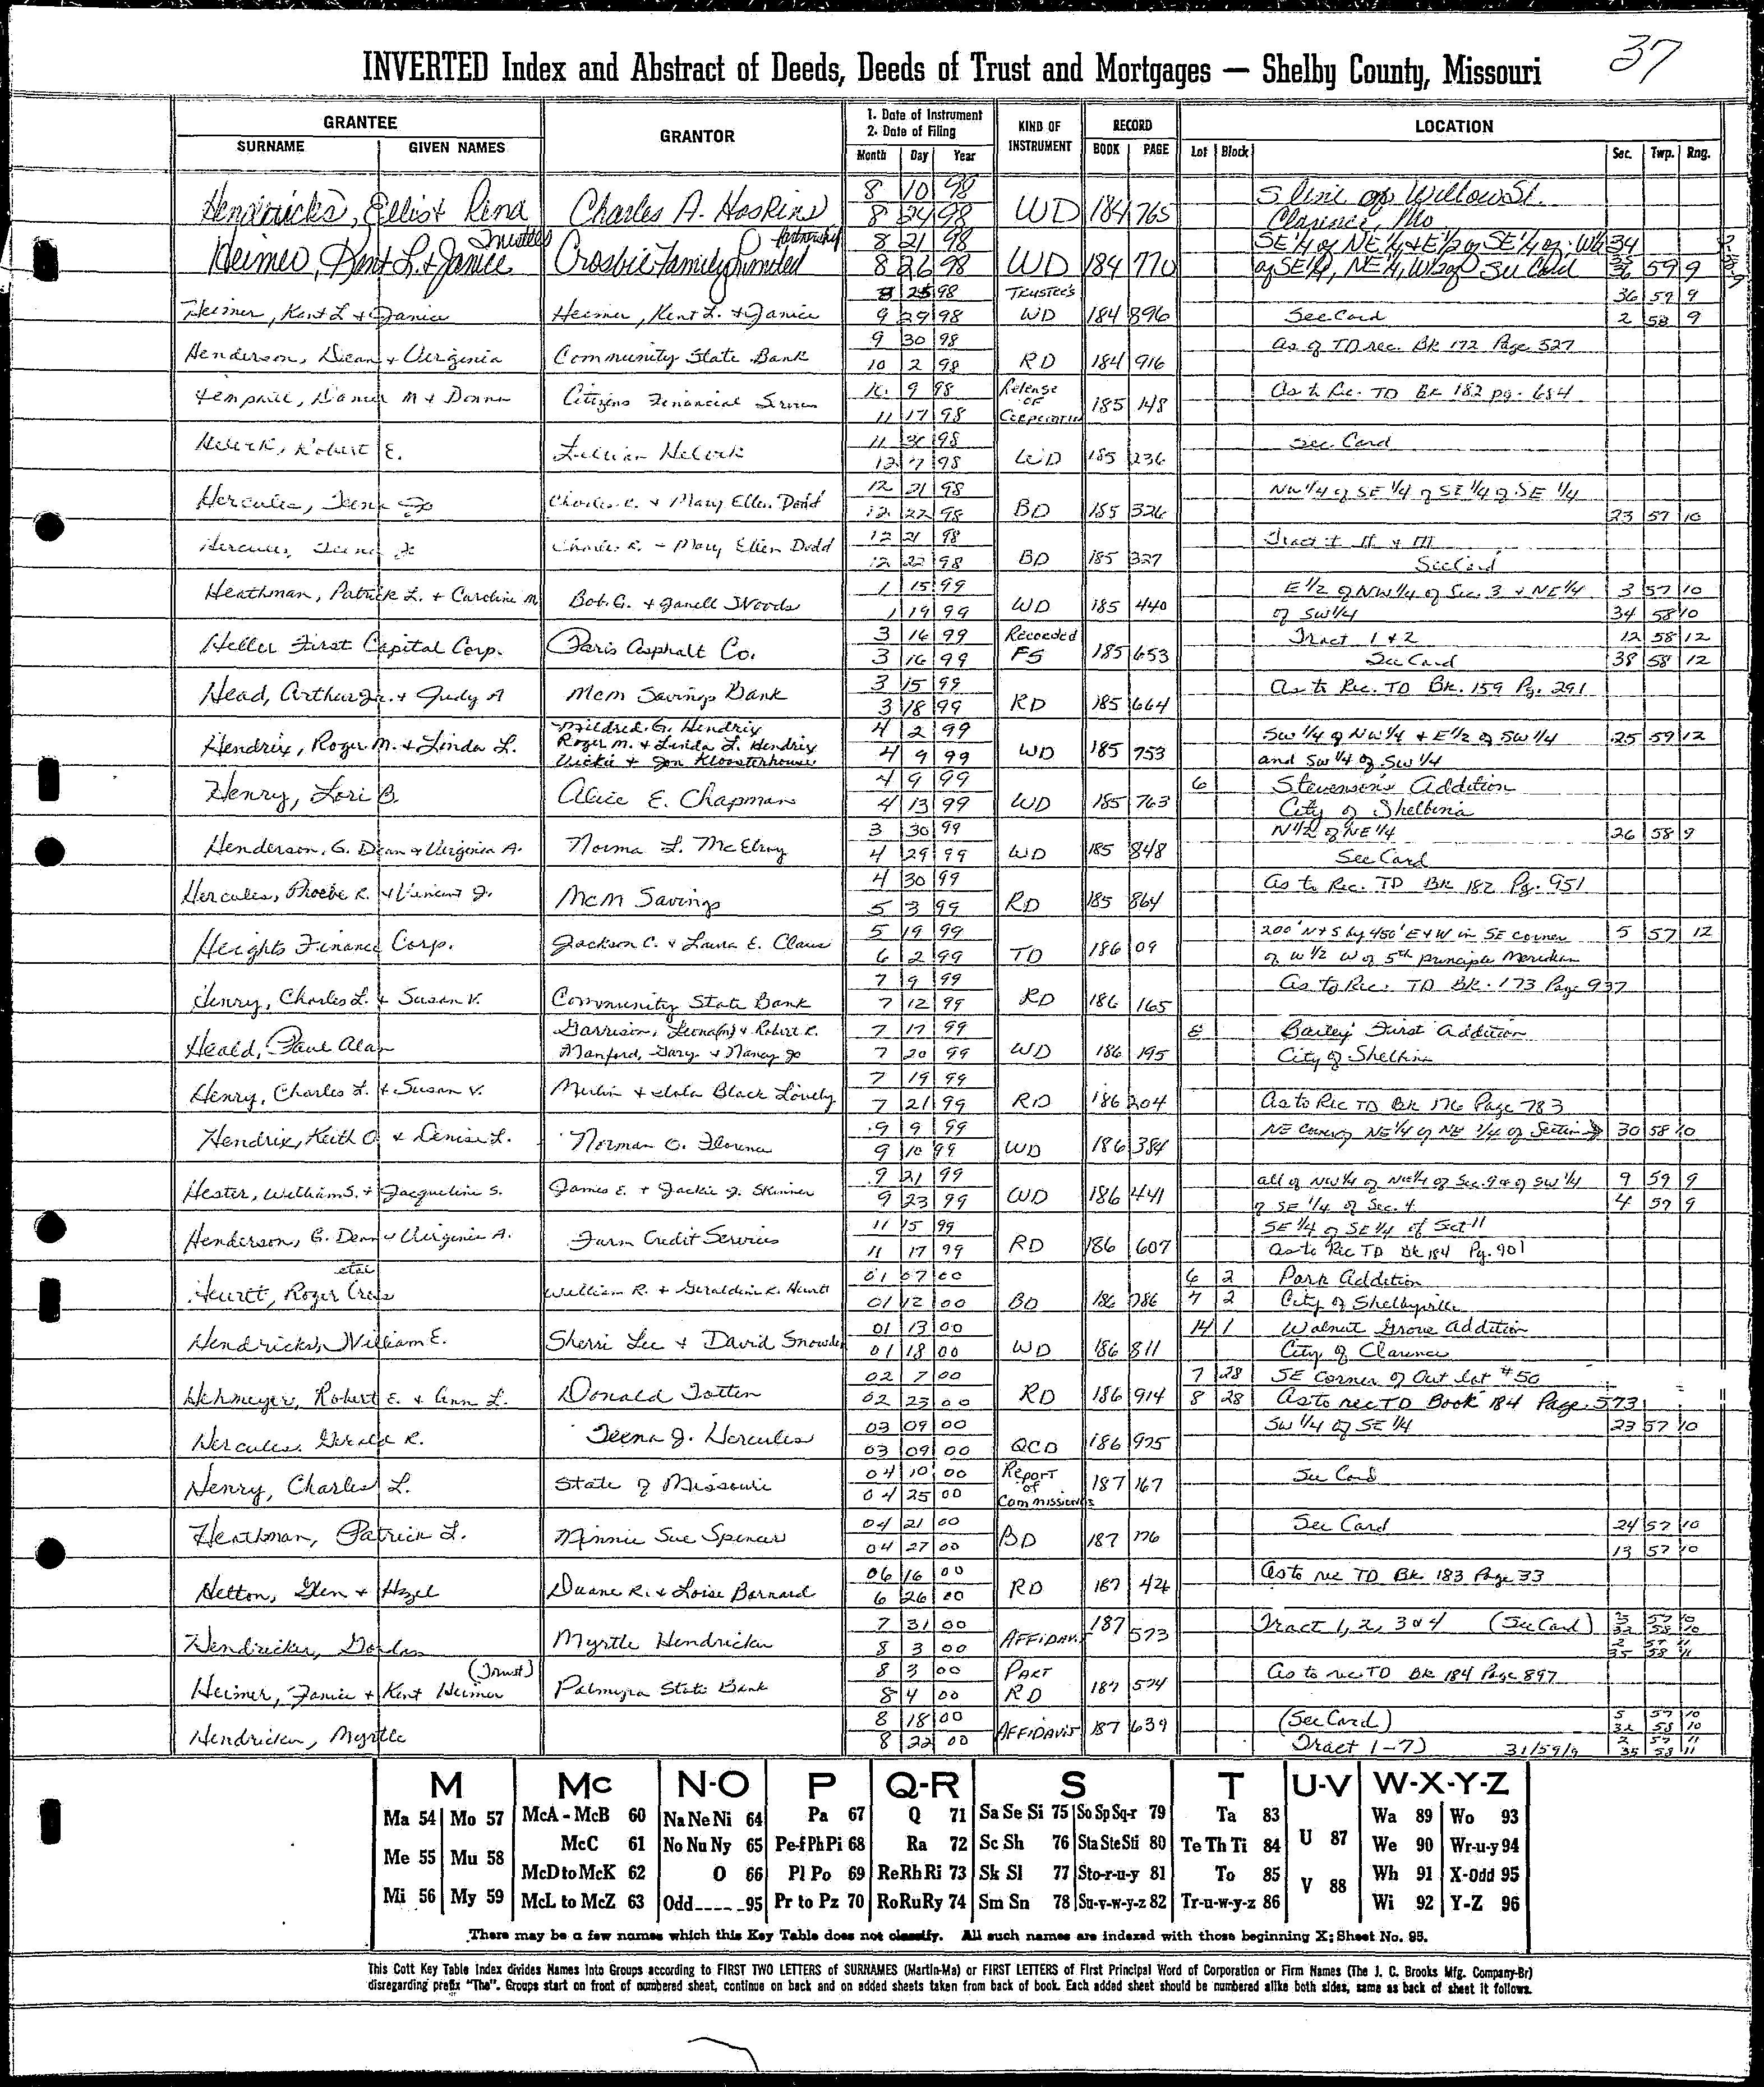 37
INVERTED Index and Abstract of Deeds, Deeds of Trust and Mortgages — Shelby County, Missouri
GRANTEE GRANTOR 1. Date of Instrument 2. Date of Filing KIND OF INSTRUMENT RECORD LOCATION
SURNAME GIVEN NAMES Month Day Year BOOK PAGE Lot Block Sec. Twp. Rng.
Hendricks, Ellis + Rena Charles A. Hoskins 8 10 98 WD 184 765 S line of Willow St.
8 24 98 Clarence, Mo
Trustees Partnership 8 21 98 SE 1/4 of NE 1/4 + E 1/2 of SE 1/4 34
Heimer, Kent L. + Janice Crosbie Family Limited 8 26 98 WD 184 770 of SE 1/4, NE 1/4, See Card 36 59 9
8 25 98 Trustee's 36 59 9
Heimer, Kent L + Janice Heimer, Kent L. + Janice 9 29 98 WD 184 896 See Card 2 58 9
Henderson, Dean + Virginia Community State Bank 9 30 98 RD 184 916 As of TD rec. Bk 172 Page 527
10 2 98
Hemphill, Daniel M + Donna Citizens Financial 10 9 98 Release of Corporation 185 148 As to Rec. TD Bk 182 pg. 654
11 17 98
Robert E. Lillian 11 98 WD 185 236 See Card
12 7 98
Hercules, Teena Jo Charles R. + Mary Ellen Dodd 12 21 98 BD 185 326 NW 1/4 of SE 1/4 of SE 1/4 of SE 1/4
12 22 98 23 57 10
Hercules, Teena Jo Charles R. + Mary Ellen Dodd 12 21 98 BD 185 327 Tract I II + III
12 22 98 See Card
Heathman, Patrick L. + Caroline M. Bob G. + Janell Woods 1 15 99 WD 185 440 E 1/2 of NW 1/4 of Sec. 3 + NE 1/4 3 57 10
1 19 99 of SW 1/4 34 58 10
Heller First Capital Corp. Paris Asphalt Co. 3 16 99 Recorded FS 185 653 Tract 1 + 2 12 58 12
3 16 99 See Card 38 58 12
Head, Arthur Jr. + Judy A Mcm Savings Bank 3 15 99 RD 185 664 As to Rec. TD Bk. 159 Pg. 291
3 18 99
Mildred G. Hendrix
Hendrix, Roger M. + Linda L. Roger M. + Linda L. Hendrix 4 2 99 WD 185 753 SW 1/4 of NW 1/4 + E 1/2 of SW 1/4 25 59 12
Vickie + Jon Kloosterhouse 4 9 99 and SW 1/4 of SW 1/4
Henry, Lori B. Alice E. Chapman 4 9 99 WD 185 763 6 Stevenson's Addition
4 13 99 City of Shelbina
Henderson, G. Dean + Virginia A. Norma L. McElroy 3 30 99 WD 185 848 N 1/2 of NE 1/4 26 58 9
4 29 99 See Card
Hercules, Phoebe R. + Vincent J. Mcm Savings 4 30 99 RD 185 864 As to Rec. TD Bk 182 Pg. 951
5 3 99
Heights Finance Corp. Jackson C. + Laura E. Claus 5 19 99 TD 186 09 200' N+S by 450' E+W in SE corner 5 57 12
6 2 99 of W 1/2 W of 5th principle Meridian
Henry, Charles L. + Susan V. Community State Bank 7 9 99 RD 186 165 As to Rec. TD Bk. 173 Page 937
7 12 99
Heald, Paul Alan Garrison, Leona(n) + Robert R. 7 17 99 WD 186 195 Bailey First Addition
Manford, Gary + Nancy Jo 7 20 99 City of Shelbina
Henry, Charles L. + Susan V. Merlin + Iola Black Lovely 7 19 99 RD 186 204 As to Rec TD Bk 176 Page 783
7 21 99
Hendrix, Keith O + Denise L. Norman O. Florence 9 9 99 WD 186 384 NE Corner of NE 1/4 of NE 1/4 of Section 30 58 10
9 10 99
Hester, William S. + Jacqueline S. James E. + Jackie J. Skinner 9 21 99 WD 186 441 all of NW 1/4 of NW 1/4 of Sec. 9 + of SW 1/4 9 59 9
9 23 99 of SE 1/4 of Sec. 4 4 59 9
Henderson, G. Dean + Virginia A. Farm Credit Services 11 15 99 RD 186 607 SE 1/4 of SE 1/4 of Sect 11
11 17 99 As to Rec TD Bk 184 Pg. 901
etal
Hewitt, Roger Craig William R. + Geraldine K. Hewitt 01 07 00 BD 186 786 6 2 Park Addition
01 12 00 7 2 City of Shelbyville
Hendricks, William E. Sherri Lee + David Snowden 01 13 00 WD 186 811 14 1 Walnut Grove Addition
01 18 00 City of Clarence
Hehmeyer, Robert E. + Ann L. Donald Totten 02 7 00 RD 186 914 7 28 SE Corner of Out Lot #50
02 23 00 8 28 As to rec TD Book 184 Page 573
Hercules, Gerald R. Teena J. Hercules 03 09 00 QCD 186 975 SW 1/4 of SE 1/4 23 57 10
03 09 00
Henry, Charles L. State of Missouri 04 10 00 Report of Commissioners 187 167 See Card
04 25 00
Heathman, Patrick L. Minnie Sue Spencer 04 21 00 BD 187 176 See Card 24 57 10
04 27 00 13 57 10
Helton, Glen + Hazel Duane R. + Loise Barnard 06 16 00 RD 187 426 As to rec TD Bk 183 Page 33
6 26 00
Hendricker, Gordon Myrtle Hendricker 7 31 00 AFFIDAVI 187 573 Tract 1, 2, 3 & 4 (See Card) 5 57 10
32 58 10
8 3 00 2 57 11
35 58 11
(Trust)
Heimer, Janice + Kent Heimer Palmyra State Bank 8 3 00 PART RD 187 574 As to rec TD Bk 184 Page 897
8 4 00
Hendricker, Myrtle 8 18 00 AFFIDAVIT 187 639 (See Card) 5 57 10
32 58 10
8 22 00 Tract 1-7) 31/59/9 2 57 11
35 58 11
M Mc N-O P Q-R S T U-V W-X-Y-Z
Ma 54 Mo 57 McA - McB 60 Na Ne Ni 64 Pa 67 Q 71 Sa Se Si 75 So Sp Sq-r 79 Ta 83 U 87 Wa 89 Wo 93
Me 55 Mu 58 McC 61 No Nu Ny 65 Pe-f Ph Pi 68 Ra 72 Sc Sh 76 Sta Ste Sti 80 Te Th Ti 84 We 90 Wr-u-y 94
McD to McK 62 O 66 Pl Po 69 Re Rh Ri 73 Sk Sl 77 Sto-r-u-y 81 To 85 V 88 Wh 91 X-Odd 95
Mi 56 My 59 McL to McZ 63 Odd 95 Pr to Pz 70 Ro Ru Ry 74 Sm Sn 78 Su-v-w-y-z 82 Tr-u-w-y-z 86 Wi 92 Y-Z 96
There may be a few names which this Key Table does not classify. All such names are indexed with those beginning X; Sheet No. 95.
This Cott Key Table Index divides Names Into Groups according to FIRST TWO LETTERS of SURNAMES (Martin-Ma) or FIRST LETTERS of First Principal Word of Corporation or Firm Names (The J. C. Brooks Mfg. Company-Br)
disregarding prefix "The". Groups start on front of numbered sheet, continue on back and on added sheets taken from back of book. Each added sheet should be numbered alike both sides, same as back of sheet it follows.